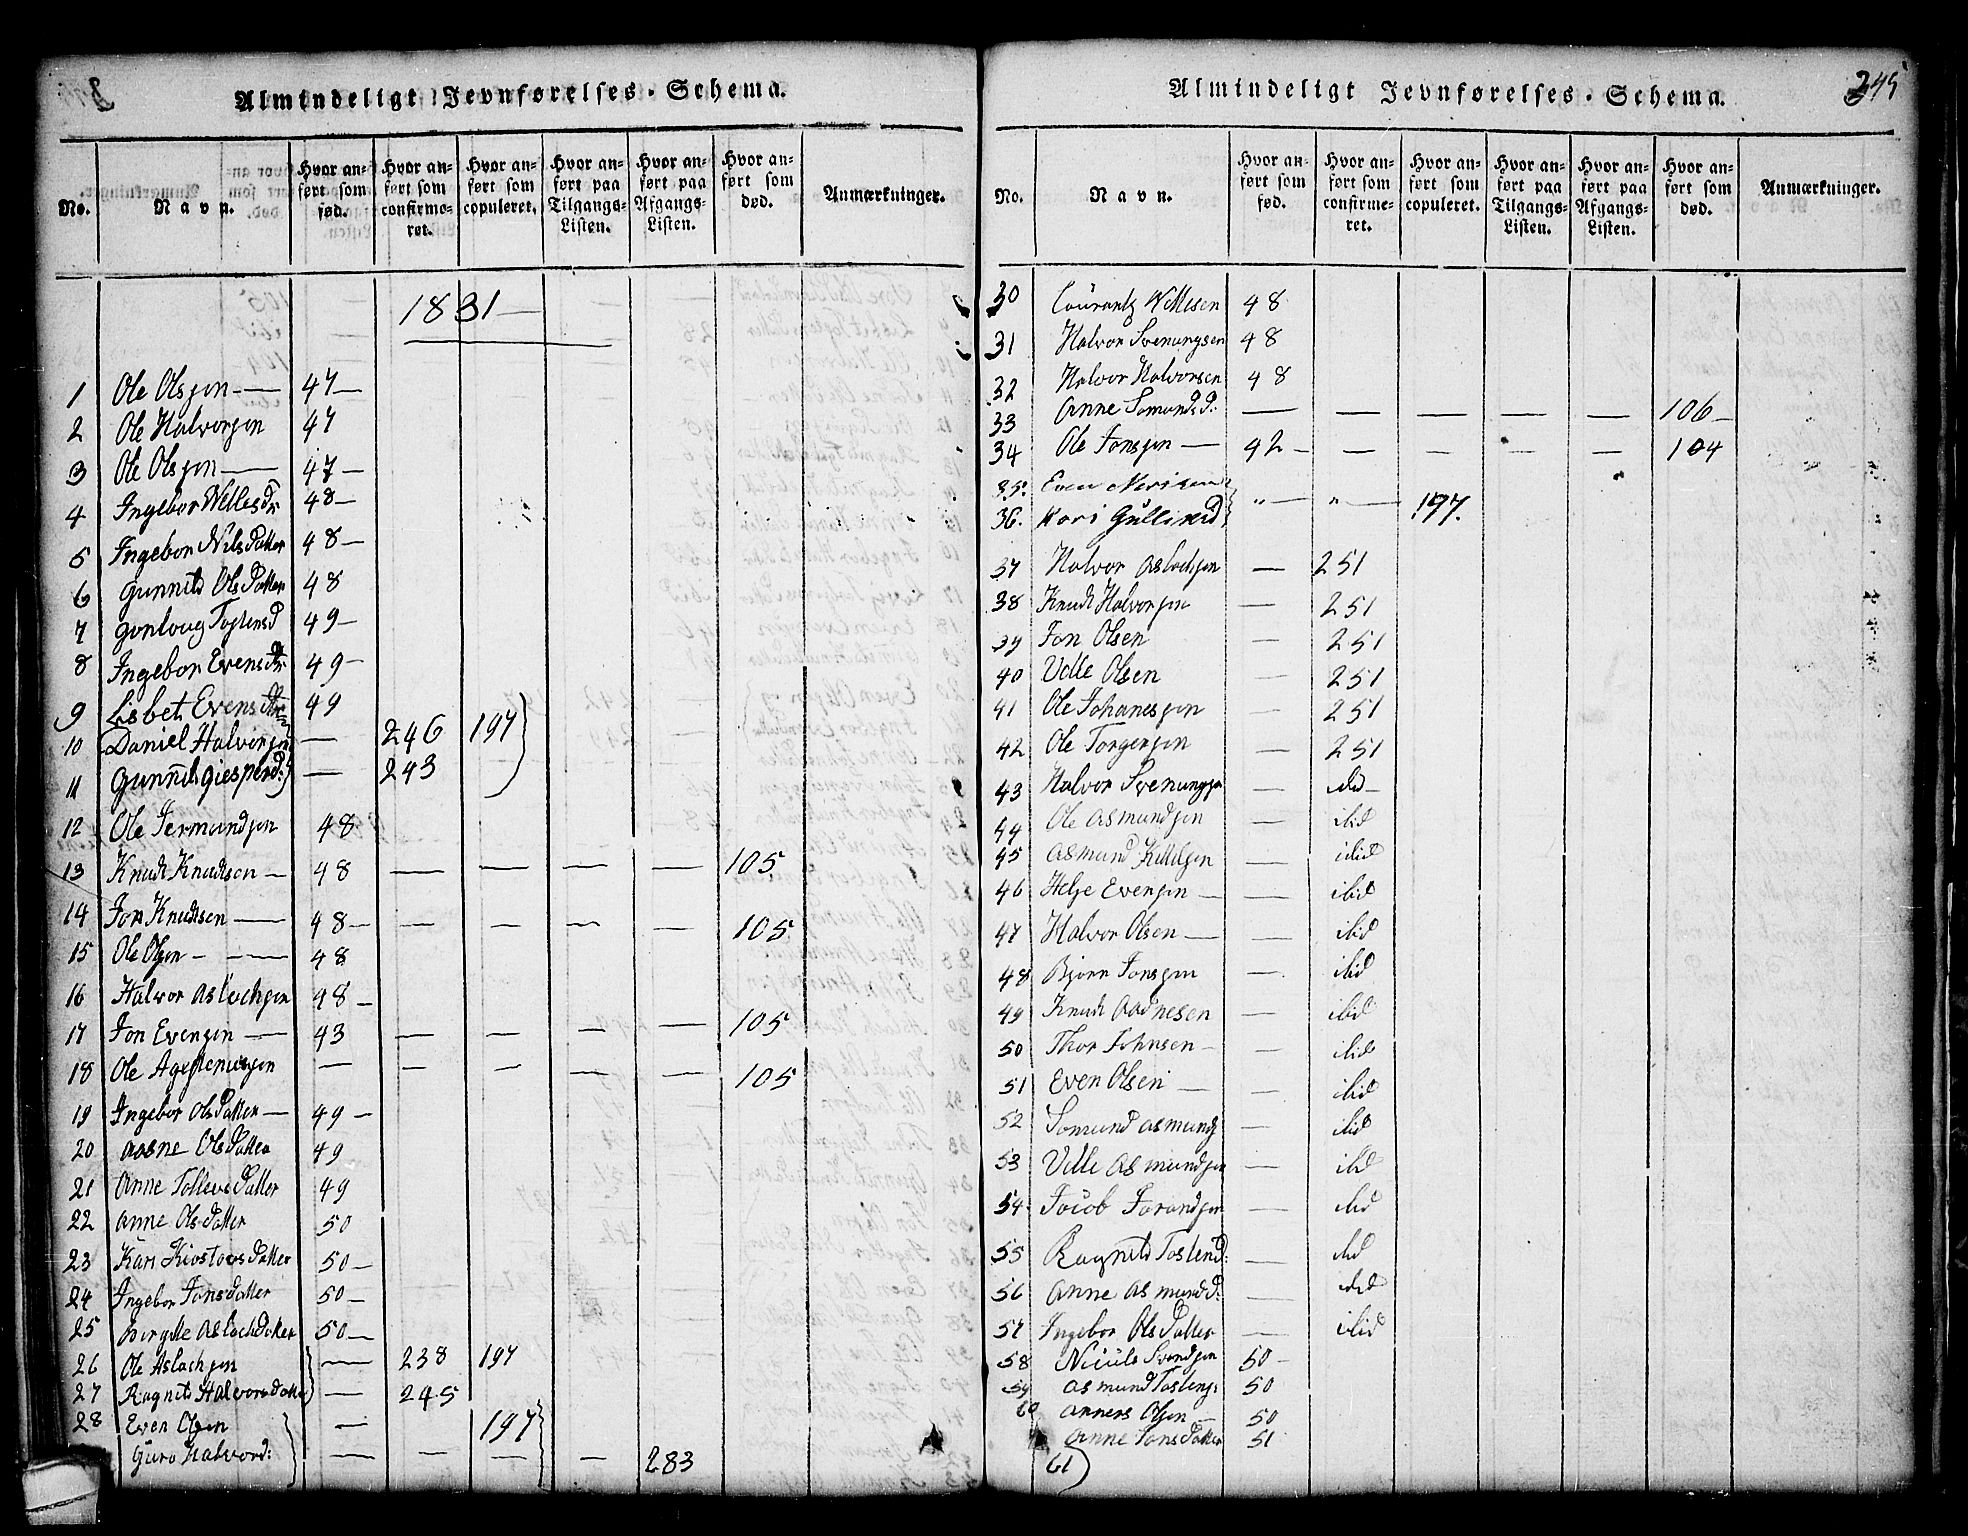 Almindeligt Jevnførelses-Schema.
No. | Navn. | Hvor anført som fød. | Hvor anført som confirmeret. | Hvor anført som copuleret. | Hvor anført paa Tilgangs-Listen. | Hvor anført paa Afgangs-Listen. | Hvor anført som død. | Anmærkninger.
1831
1 Ole Olsen — 47 —
2 Ole Halvorsen 47
3 Ole Olsen — 47 —
4 Ingebor Vellesdr 48 —
5 Ingebor Nilsdatter 48 —
6 Gunnild Olsdatter 48
7 Gonloug Tostensd 49 —
8 Ingebor Evensdtr 49 —
9 Lisbet Evensdtr 49
10 Daniel Halvorsen — 246 197
11 Gunnild Giesperd: — 243
12 Ole Jermundsen 48
13 Knudt Knudtsen — 48 — — — — 105
14 Jon Knudtsen — 48 — — — — — 105
15 Ole Olsen — — 48
16 Halvor Aslachsen 48 —
17 Jon Evensen — 43 — — — — 105
18 Ole — — — — — 105
19 Ingebor Olsdatter — 49 —
20 Aasne Olsdatter 49
21 Anne Tollevsdatter 49
22 Anne Olsdatter 50
23 Kari Kiostovsdatter 50 —
24 Ingebor Jonsdatter 50 —
25 Birgitte Aslachdatter 50 —
26 Ole Aslachsen — 238 197
27 Ragnild Halvorsdatter — 245
28 Even Olsen — 197
Guro Halvord: — — — — 283
Almindeligt Jevnførelses-Schema. 245
No. | Navn. | Hvor anført som fød. | Hvor anført som confirmeret. | Hvor anført som copuleret. | Hvor anført paa Tilgangs-Listen. | Hvor anført paa Afgangs-Listen. | Hvor anført som død. | Anmærkninger.
30 Laurantz Kittilsen 48
31 Halvor Svenungsen 48
32 Halvor Halvorsen 48
33 Anne Somundsd: — — — — — 106 —
34 Ole Jonsen — 42 — — — — — 104
35. Even
36. Kari " — " — 197.
37 Halvor Aslachsen — 251
38 Knudt Halvorsen — 251
39 Jon Olsen — 251
40 Velle Olsen — 251
41 Ole Johanesen — 251
42 Ole Torgersen — 251
43 Halvor Svenungsen — ibid —
44 Ole Asmundsen — ibid
45 Asmund Kittilsen — ibid
46 Helje Evensen — — ibid
47 Halvor Olsen — — ibid
48 Bjørn Jonsen — ibid
49 Knudt Aadnesen — ibid
50 Thor Johnsen — — ibid
51 Even Olsen — — ibid
52 Somund Asmunds — ibid
53 Velle Asmundsen — ibid
54 Jacob — ibid
55 Ragnild Tostend: — ibid
56 Anne Asmundd: — ibid
57 Ingebor Olsdatter — ibid
58 Niüls Svendsen 50 —
59 Asmund Tostens: 50
60 Anners Olsen — 50
Anne Jonsdatter 51
61)